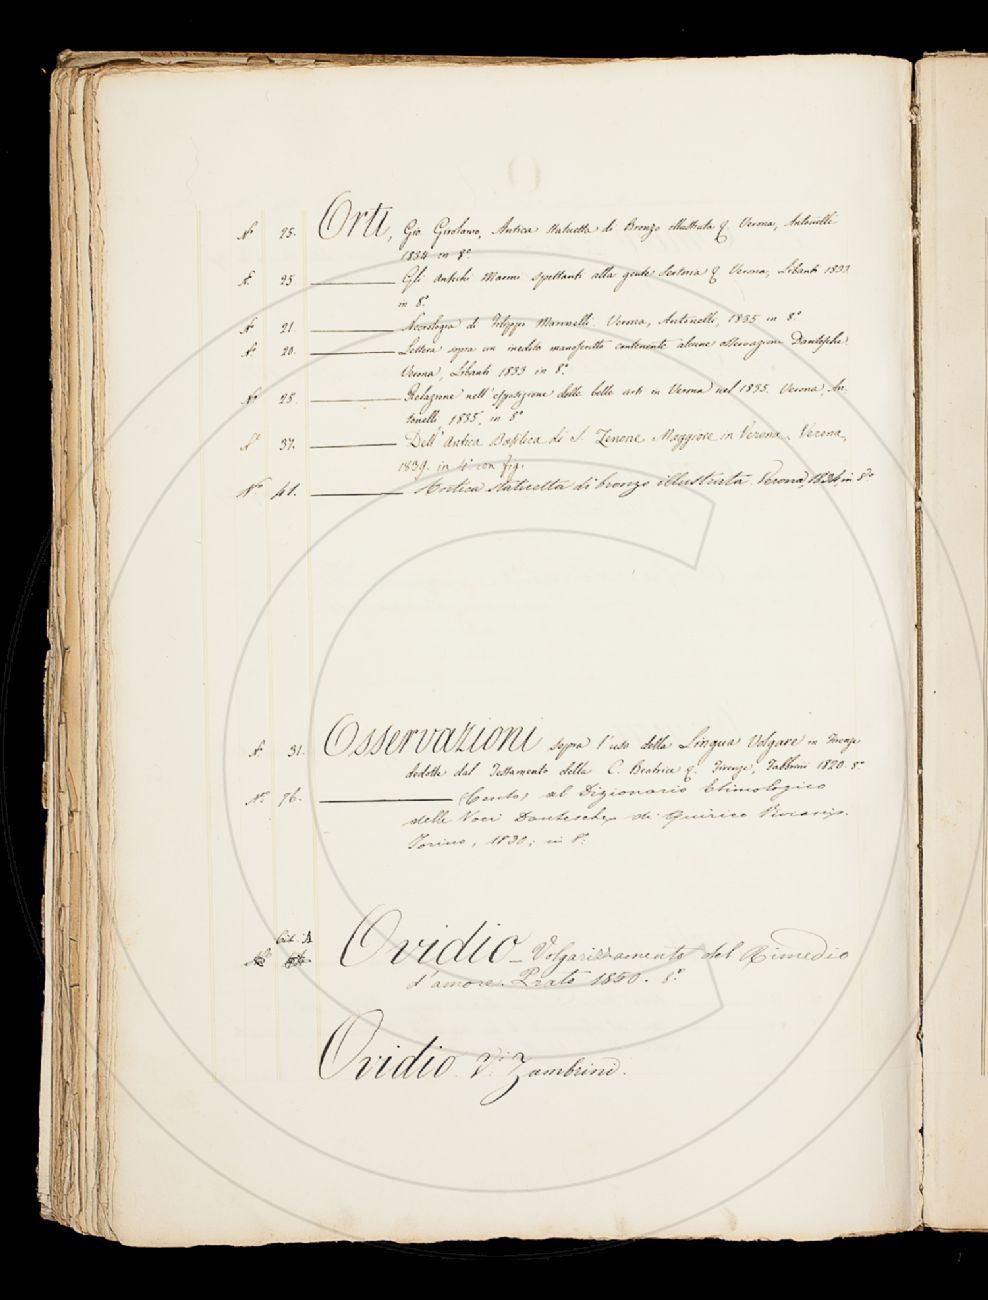 O
Nº 25. Orti, Gio. Girolamo, Antica statuetta di Bronzo illustrata &. Verona, Antonelli
1834 in 8º
Nº 25. Gli Antichi Marmi spettanti alla gente Sertoria & Verona, Libanti 1833
in 8º
Nº 21. Necrologia di Filippo Marinelli. Verona, Antonelli, 1835 in 8º
Nº 20. Lettera sopra un inedito manoscritto contenente alcune osservazioni Dantesche.
Verona, Libanti 1833 in 8º
Nº 25. Relazione nell'esposizione delle belle arti in Verona nel 1835. Verona, An-
tonelli, 1835, in 8º
Nº 37. Dell'Antica Basilica di S. Zenone Maggiore in Verona. Verona,
1839. in 4º con fig.
Nº 41. Antica statuetta di bronzo illustrata. Verona, 1834, in 8º
Nº 31. Osservazioni sopra l'uso della Lingua Volgare in Firenze
dedotte dal Testamento della C. Beatrice &. Firenze, Fabbrini 1820 8º
Nº 76. (Cento) al Dizionario Etimologico
delle Voci Dantesche di Quirico Viviani.
Torino, 1830; in 8º
Ovidio – Volgarizzamento del Rimedio
d'amore. Prato 1850. 8º
Ovidio. Vi Zambrini.